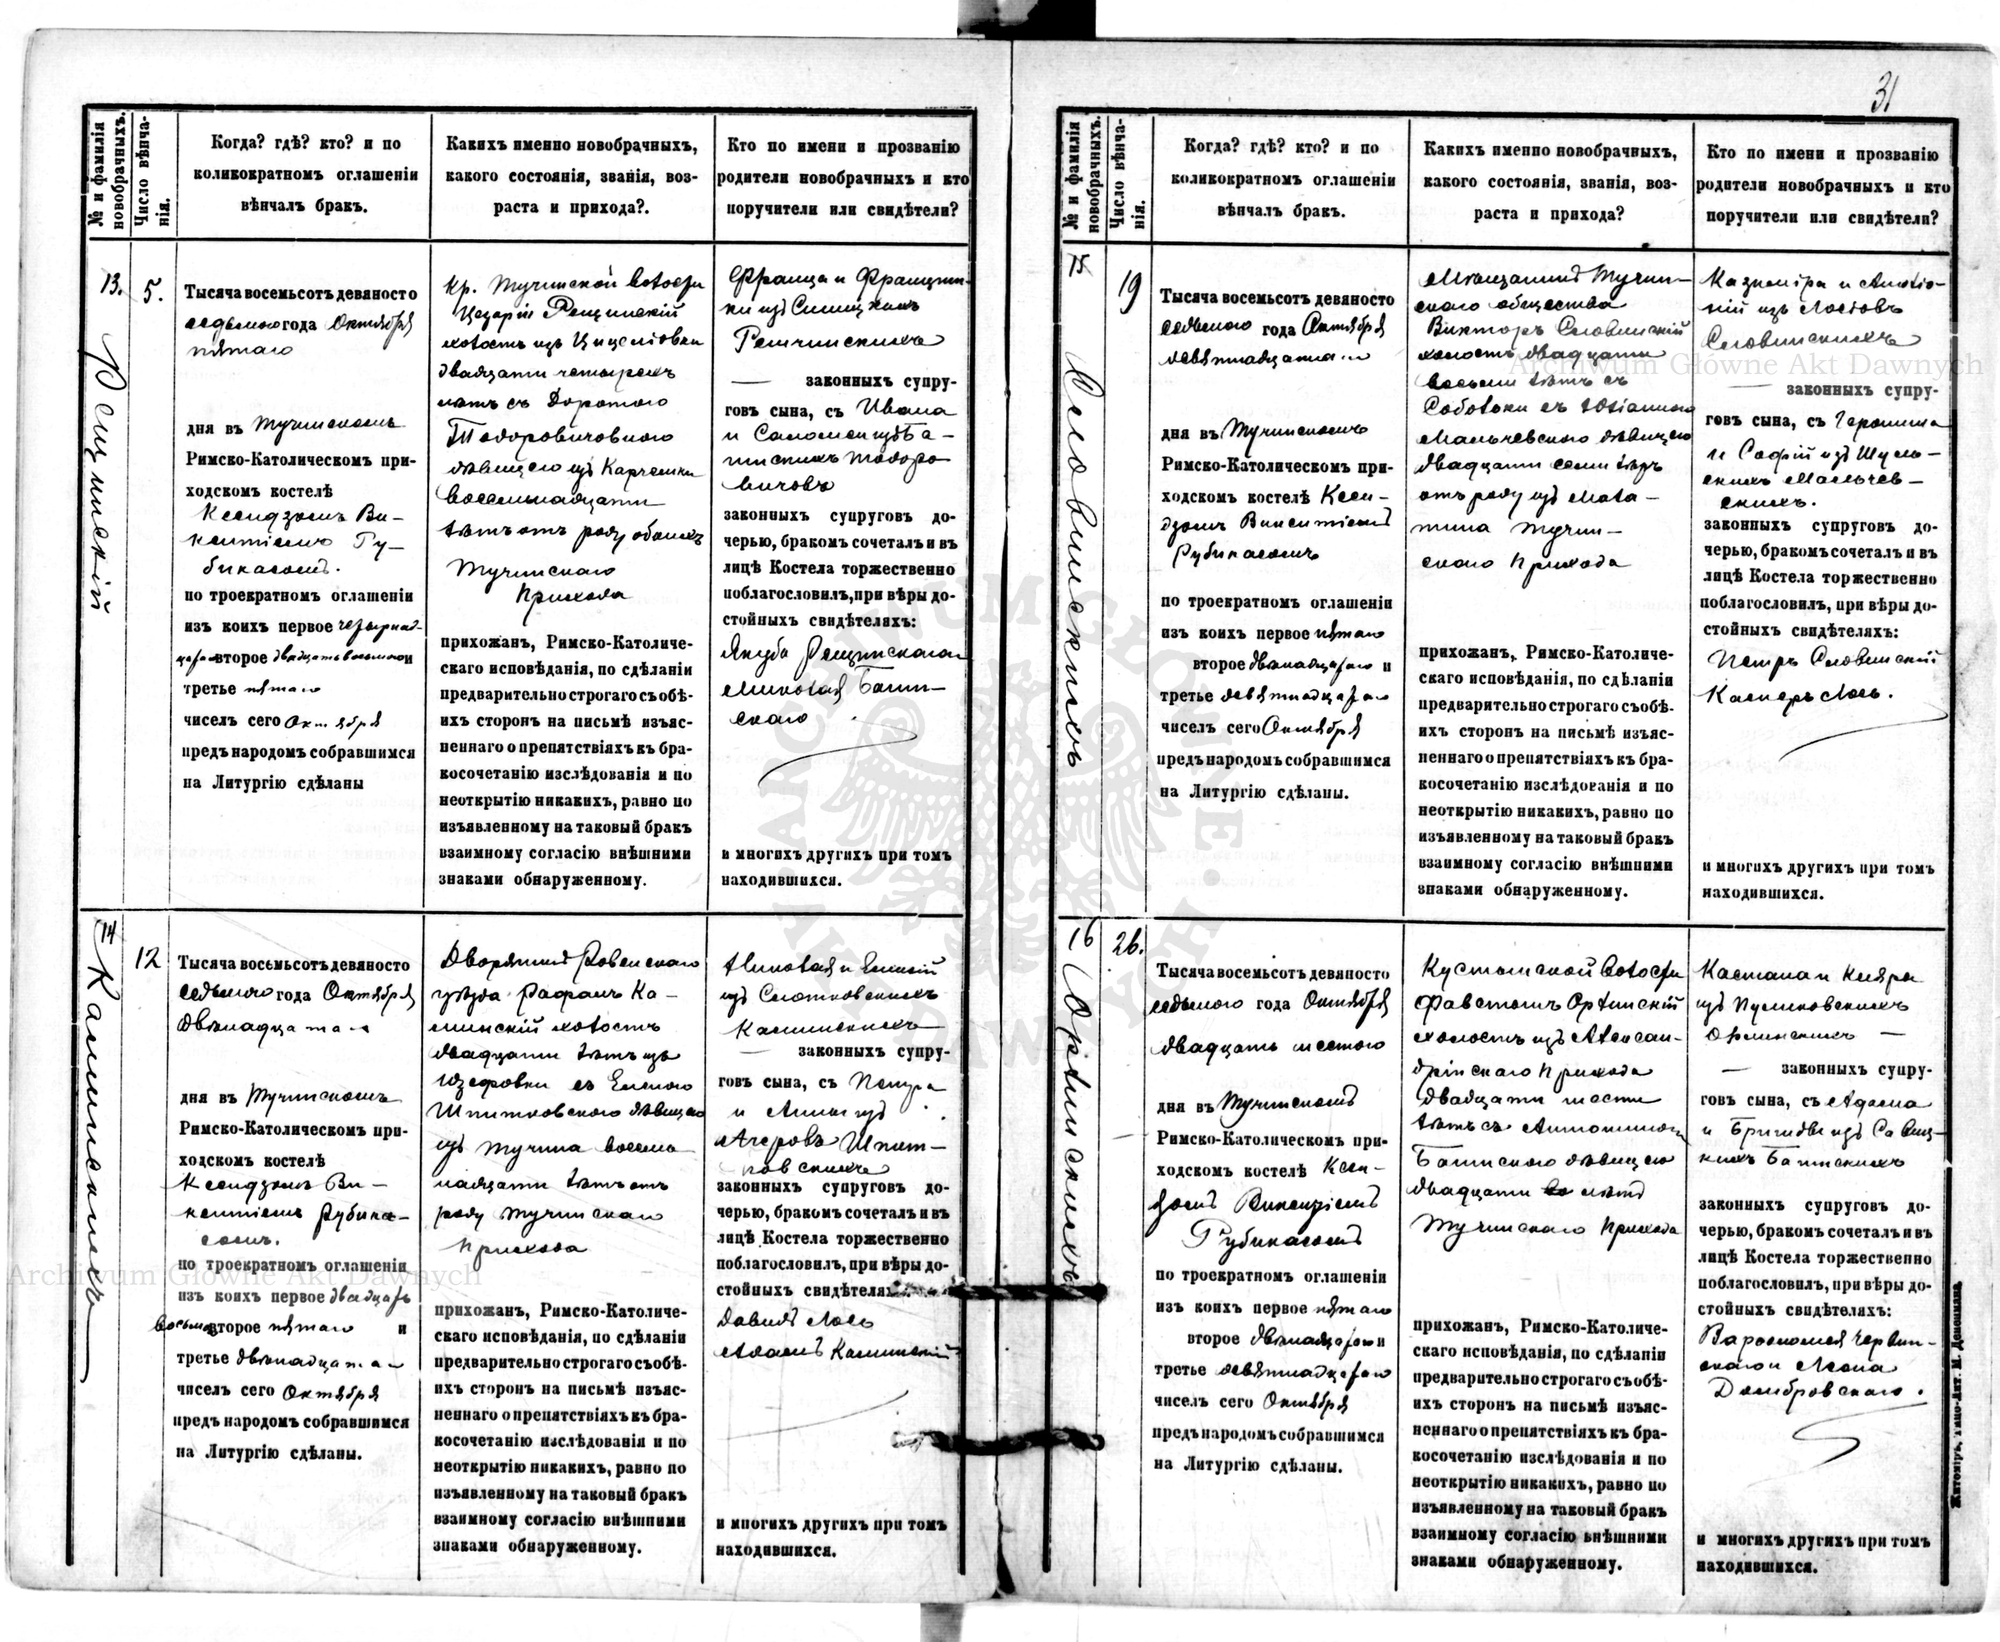 31
№ и фамилія новобрачныхъ.
Число вѣнча-
нія.
Когда? гдѣ? кто? и по
коликократномъ оглашеніи
вѣнчалъ бракъ.
Какихъ именно новобрачныхъ,
какого состоянія, званія, воз-
раста и прихода?.
Кто по имени и прозванію
родители новобрачныхъ и кто
поручители или свидѣтели?
13.
5.
Тысяча восемьсотъ девяносто
седьмого года Октября
пятаго
дня въ Тучинскомъ
Римско-Католическомъ при-
ходскомъ костелѣ
Ксендзомъ Ви-
кентіемъ Ру-
бикасомъ.
по троекратномъ оглашеніи
изъ коихъ первое
второе двадцать восьмого и
третье пятаго
чиселъ сего Октября
предъ народомъ собравшимся
на Литургію сдѣланы
Кр. Тучинской волости
Цезарій Рещинскій
холостъ изъ
двадцати четырехъ
лѣтъ съ Доротою
Тодоровичовною
дѣвицею изъ
восемнадцати
лѣтъ отъ роду обоихъ
Тучинскаго
Прихода
прихожан, Римско-Католиче-
скаго исповѣданія, по сдѣланіи
предварительно строгаго съ обѣ-
ихъ сторонъ на письмѣ изъяс-
неннаго о препятствіяхъ къ бра-
косочетанію изслѣдованія и по
неоткрытію никакихъ, равно по
изъявленному на таковый бракъ
взаимному согласію внѣшними
знаками обнаруженному.
Франца и Францишки
изъ
Рещинскихъ
— законныхъ супру-
говъ сына, съ Ивана
и Саломеи изъ Ба-
гинскихъ Тодоро
вичовъ
законныхъ супруговъ до-
черью, бракомъ сочеталъ и въ
лицѣ Костела торжественно
поблагословилъ, при вѣры до-
стойныхъ свидѣтеляхъ:
Якуба Рещинскаго
Миколая Багин-
скаго
и многихъ другихъ при томъ
находившихся.
Рещинскій
14
12
Тысяча восемьсотъ девяносто
седьмого года Октября
двѣнадцатаго
дня въ Тучинскомъ
Римско-Католическомъ при-
ходскомъ костелѣ
Ксендзомъ Ви-
кентіемъ Рубика-
сомъ.
по троекратномъ оглашеніи
изъ коихъ первое двадцать
восьмого второе пятаго и
третье двѣнадцатаго
чиселъ сего Октября
предъ народомъ собравшимся
на Литургію сдѣланы.
Дворянинъ Ровенскаго
уѣзда Рафалъ Ка-
минскій холостъ
двадцати лѣтъ изъ
Юзефовки съ Еленою
Шпитковского дѣвицею
изъ Тучина восем-
надцати лѣтъ отъ
роду Тучинскаго
Прихода
прихожан, Римско-Католиче-
скаго исповѣданія, по сдѣланіи
предварительно строгаго съ обѣ-
ихъ сторонъ на письмѣ изъяс-
неннаго о препятствіяхъ къ бра-
косочетанію изслѣдованія и по
неоткрытію никакихъ, равно по
изъявленному на таковый бракъ
взаимному согласію внѣшними
знаками обнаруженному.
Миколая и
изъ
Каминскихъ
— законныхъ супру-
говъ сына, съ Петра
и Анны изъ
Шпит-
ковскихъ
законныхъ супруговъ до-
черью, бракомъ сочеталъ и въ
лицѣ Костела торжественно
поблагословилъ, при вѣры до-
стойныхъ свидѣтеляхъ
Давидъ Лось
Адамъ Каминскій
и многихъ другихъ при томъ
находившихся.
Каминскихъ
№ и фамилія новобрачныхъ.
Число вѣнча-
нія.
Когда? гдѣ? кто? и по
коликократномъ оглашеніи
вѣнчалъ бракъ.
Какихъ именно новобрачныхъ,
какого состоянія, званія, воз-
раста и прихода?
Кто по имени и прозванію
родители новобрачныхъ и кто
поручители или свидѣтели?
15
19
Тысяча восемьсотъ девяносто
седьмого года Октября
девятнадцатаго
дня въ Тучинскомъ
Римско-Католическомъ при-
ходскомъ костелѣ Ксен-
дзомъ Викентіемъ
Рубикасомъ
по троекратномъ оглашеніи
изъ коихъ первое пятаго
второе двѣнадцатаго и
третье девятнадцатаго
чиселъ сего Октября
предъ народомъ собравшимся
на Литургію сдѣланы.
Мѣщанинъ Тучин-
скаго общества
Викторъ Словинскій
холостъ двадцати
восьми лѣтъ съ
Мальчевского дѣвицею
двадцати семи лѣтъ
отъ роду изъ
Тучин-
скаго Прихода
прихожан, Римско-Католиче-
скаго исповѣданія, по сдѣланіи
предварительно строгаго съ обѣ-
ихъ сторонъ на письмѣ изъяс-
неннаго о препятствіяхъ къ бра-
косочетанію изслѣдованія и по
неоткрытію никакихъ, равно по
изъявленному на таковый бракъ
взаимному согласію внѣшними
знаками обнаруженному.
Казиміра и Антo-
ніи изъ Лосіовъ
Словинскихъ
— законныхъ супру-
говъ сына, съ Геронима
и Софіи изъ Шуль-
скихъ Мальчев-
скихъ.
законныхъ супруговъ до-
черью, бракомъ сочеталъ и въ
лицѣ Костела торжественно
поблагословилъ, при вѣры до-
стойныхъ свидѣтеляхъ:
Петръ Словинскій
Касперъ Лось.
и многихъ другихъ при томъ
находившихся.
Словинскихъ
16
26.
Тысяча восемьсотъ девяносто
седьмого года Октября
двадцать шестого
дня въ Тучинскомъ
Римско-Католическомъ при-
ходскомъ костелѣ Ксен-
дзомъ Викентіемъ
Рубикасомъ
по троекратномъ оглашеніи
изъ коихъ первое пятаго
второе двѣнадцатаго и
третье девятнадцатаго
чиселъ сего Октября
предъ народомъ собравшимся
на Литургію сдѣланы.
волости
Фавстынъ Орлинскій
холостъ изъ Алексан-
дрійскаго Прихода
двадцати шести
лѣтъ съ Антониною
Багинского дѣвицею
двадцати лѣтъ
Тучинскаго Прихода
прихожан, Римско-Католиче-
скаго исповѣданія, по сдѣланіи
предварительно строгаго съ обѣ-
ихъ сторонъ на письмѣ изъяс-
неннаго о препятствіяхъ къ бра-
косочетанію изслѣдованія и по
неоткрытію никакихъ, равно по
изъявленному на таковый бракъ
взаимному согласію внѣшними
знаками обнаруженному.
Каетана и Кляры
изъ
Орлинскихъ —
— законныхъ супру-
говъ сына, съ Адама
и Бригиды изъ Савиц-
кихъ Багинскихъ
законныхъ супруговъ до-
черью, бракомъ сочеталъ и въ
лицѣ Костела торжественно
поблагословилъ, при вѣры до-
стойныхъ свидѣтеляхъ:
Варфоломея Червин-
скаго и Леона
Домбровскаго.
и многихъ другихъ при томъ
находившихся.
Орлинскихъ
Житоміръ, Типо-Лит. М. Дененмана.
Archiwum Główne Akt Dawnych
Archiwum Główne Akt Dawnych
ARCHIWUM GŁÓWNE AKT DAWNYCH